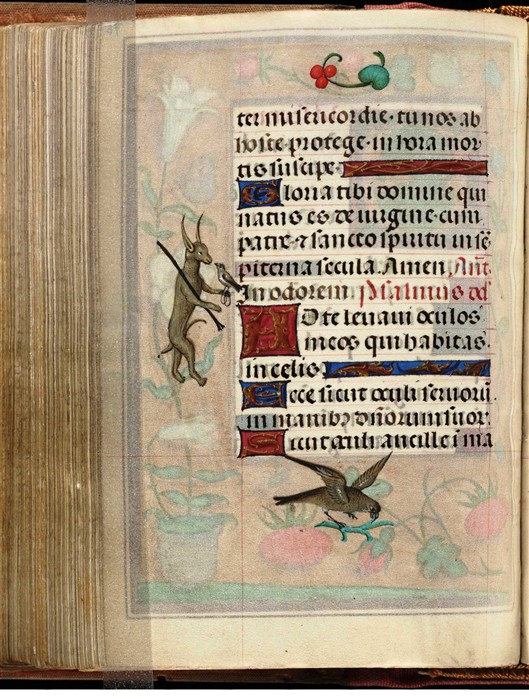 ter misericordie · tu nos ab
hoste protege · in hora mor
tis suscipe ·
Gloria tibi domine qui
natus es de uirgine · cum
patre ⁊ sancto spiritu in sē
piterna secula. Amen. Añt.
In odorem. Psalmus dd
AD te leuaui oculos
meos qui habitas
in celis.
Ecce sicut oculi seruorū.
in manibꝫ dñorum suor
Sicut oculi ancille ī ma